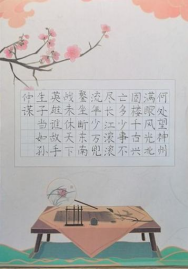 何处望神州
满眼风光北
固楼千古兴
亡多少事不
尽长江滚滚
流年少万兜
鍪坐断东南
战未休天下
英雄谁敌手
生子当如孙
仲谋